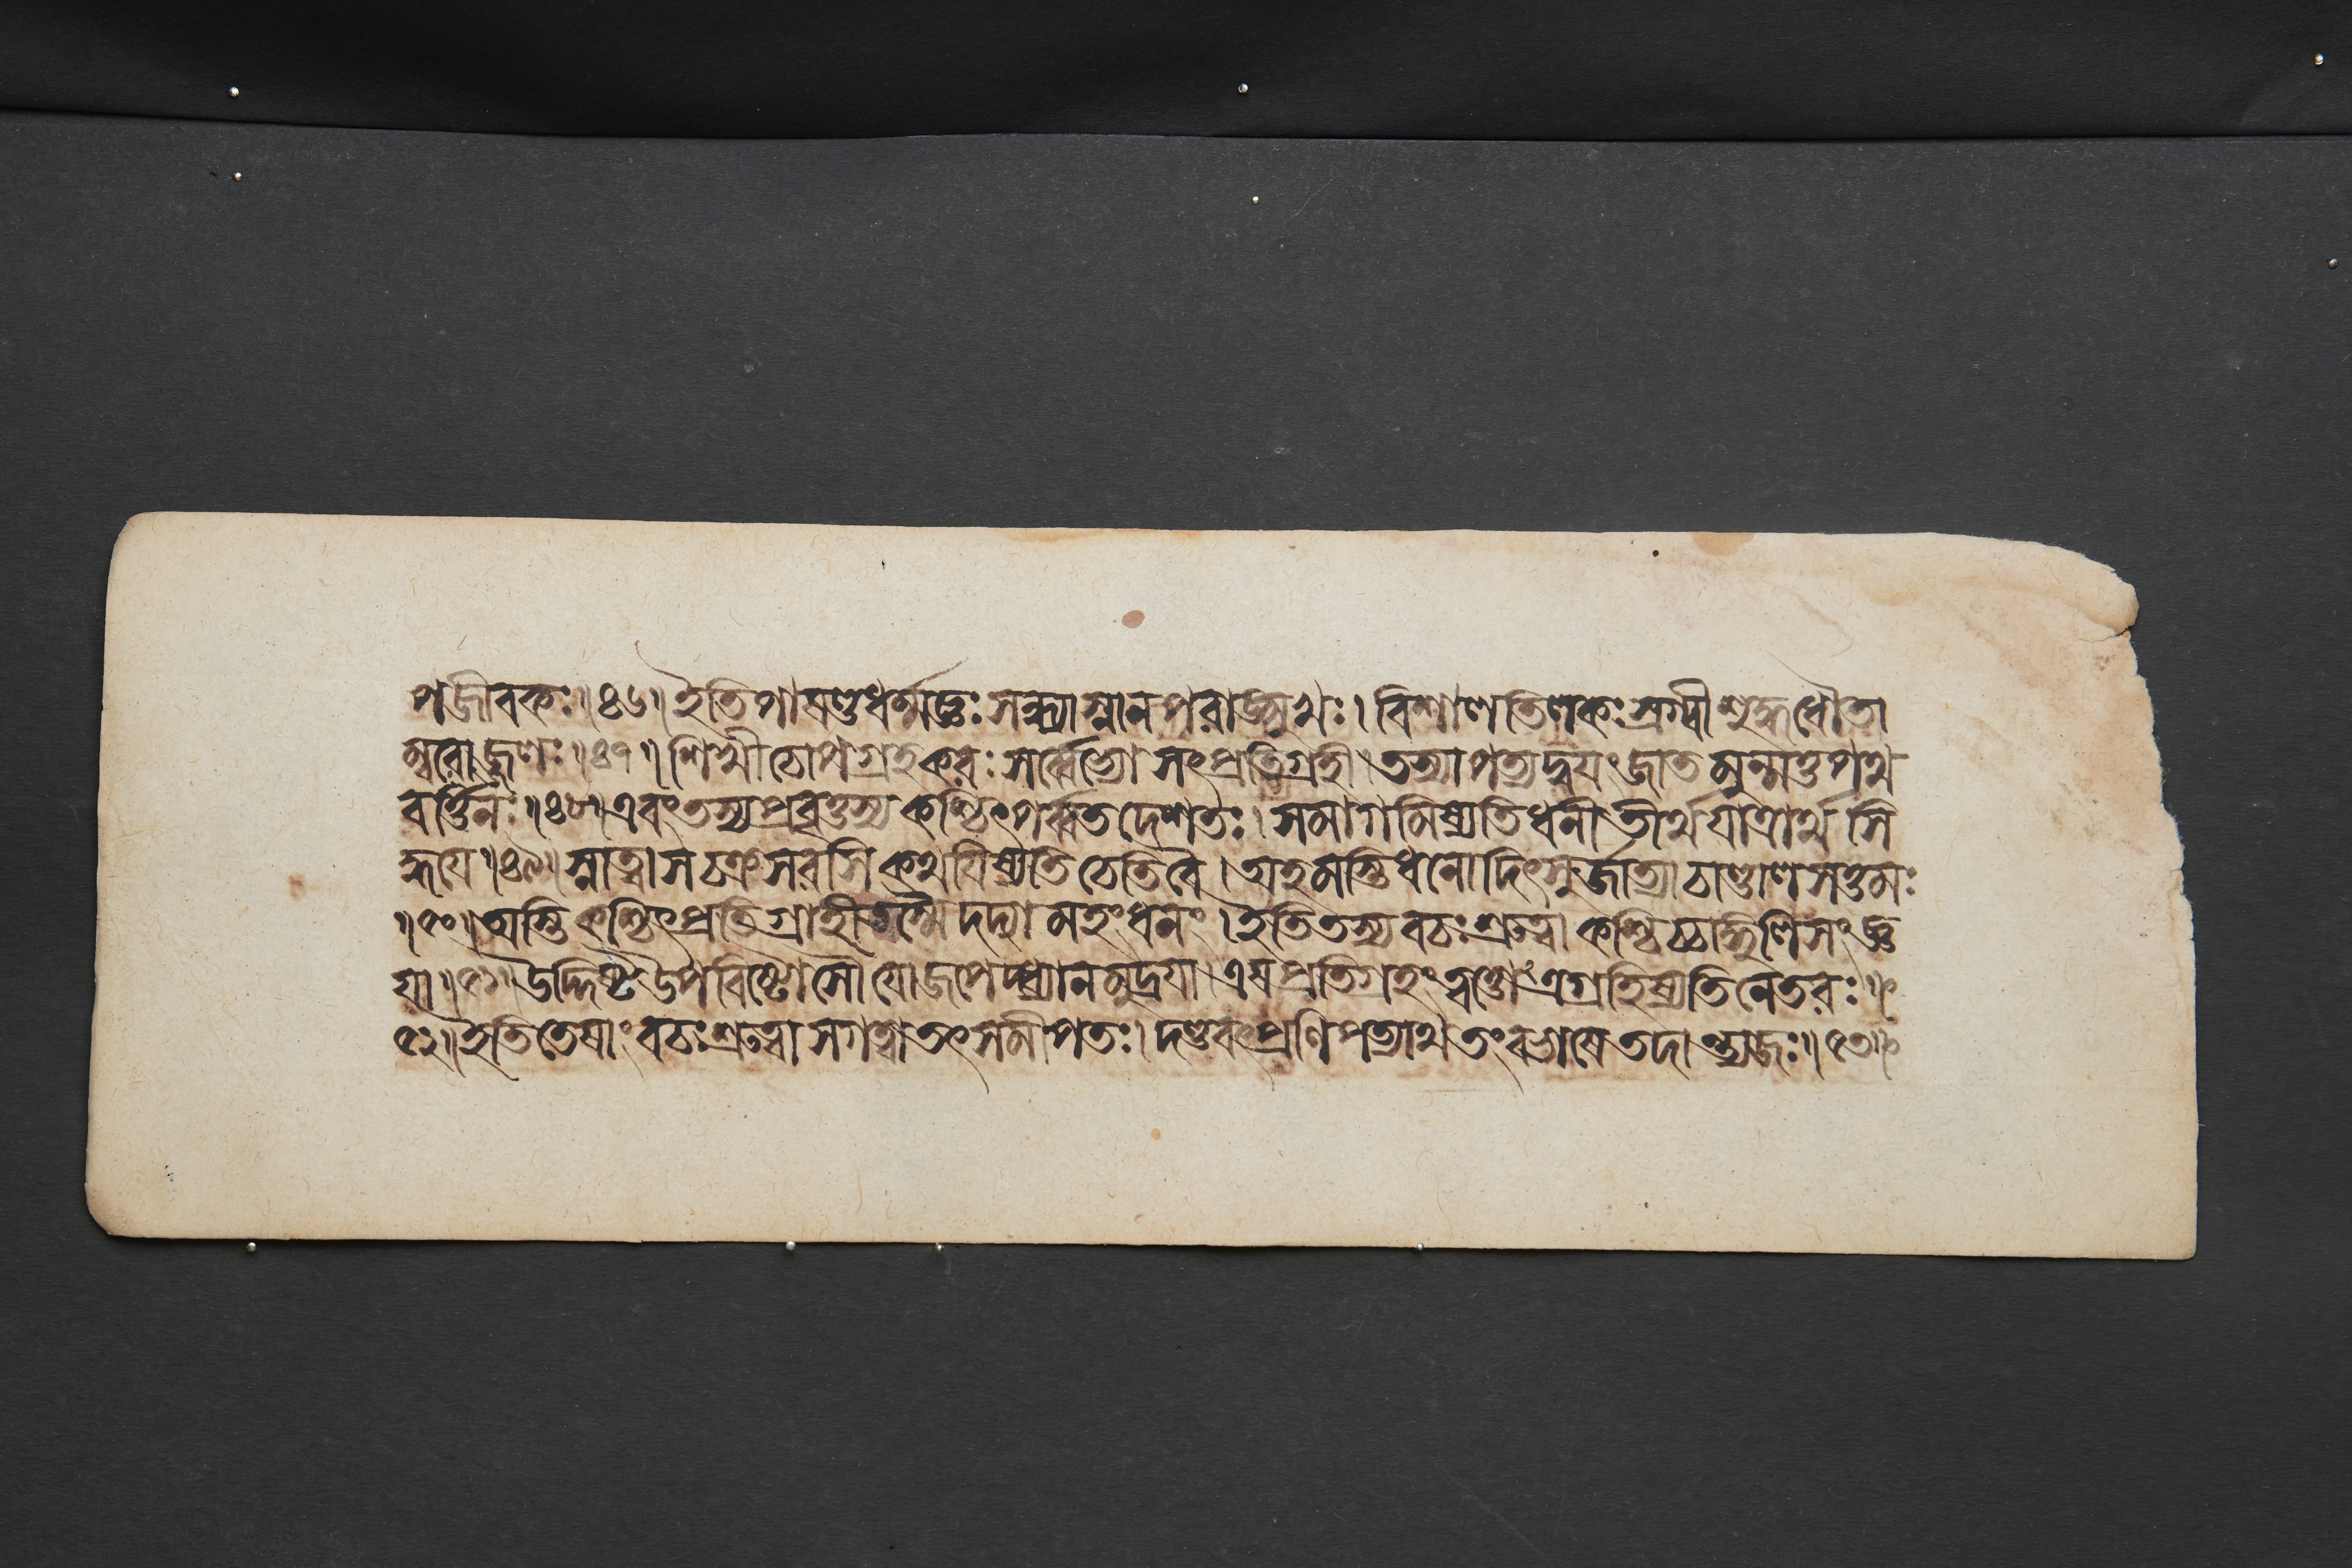 পজীবকঃ॥৪৬॥ইতিপাষণ্ডধর্ম্মজ্ঞঃসন্ধ্যাস্নানপরাঙ্মুখঃ। বিশালতিলকঃস্রগ্বীশুদ্ধধৌতা
ম্বরোজ্জ্বলঃ॥৪৭॥শিখীচোপগ্রহকরঃসর্ব্বেভ্যোসৎপ্রতিগ্রহী। তস্যাপত্যদ্বয়ংজাতমুন্মত্তপথ
বর্ত্তিনঃ॥৪৮॥এবংতস্যপ্রবৃত্তস্যকশ্চিৎপর্ব্বতদেশতঃ। সমাগমিষ্যতিধনীতীর্থযাত্রার্থসি
দ্ধয়ে॥৪৯॥স্নাত্বাসচক্রসরসিকথয়িষ্যতিচেতিবৈ। অহমস্মিধনোদিৎসুর্জাত্যাচাণ্ডালসত্তমঃ
॥৫০॥অস্তিকশ্চিৎপ্রতিগ্রাহীতস্মৈদদ্যামহংধনং। ইতিতস্যবচঃশ্রুত্বাকশ্চিচ্চাঙ্গুলিসংজ্ঞ
য়া॥৫১॥উদ্দিষ্টউপবিষ্টোসৌযোজপেদ্ধ্যানমুদ্রয়া। এষপ্রতিগ্রহংত্বত্তোগ্রহিষ্যতিনেতরঃ॥
৫২॥ইতিতেষাংবচঃশ্রুত্বাসগত্বাতৎসমীপতঃ। দণ্ডবৎপ্রণিপত্যাথতংবভাষেতদান্ত্যজঃ॥৫৩॥